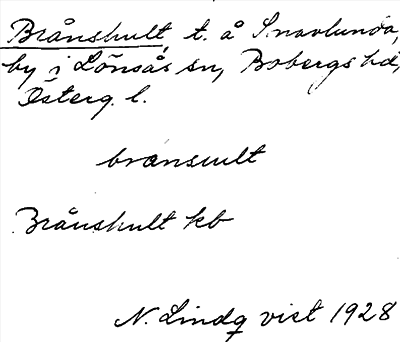 Brånshult, t. å Snavlunda,
by i Lönsås sn, Bobergs hd,
Österg. l.
bransult
Brånshult kb
N. Lindqvist 1928